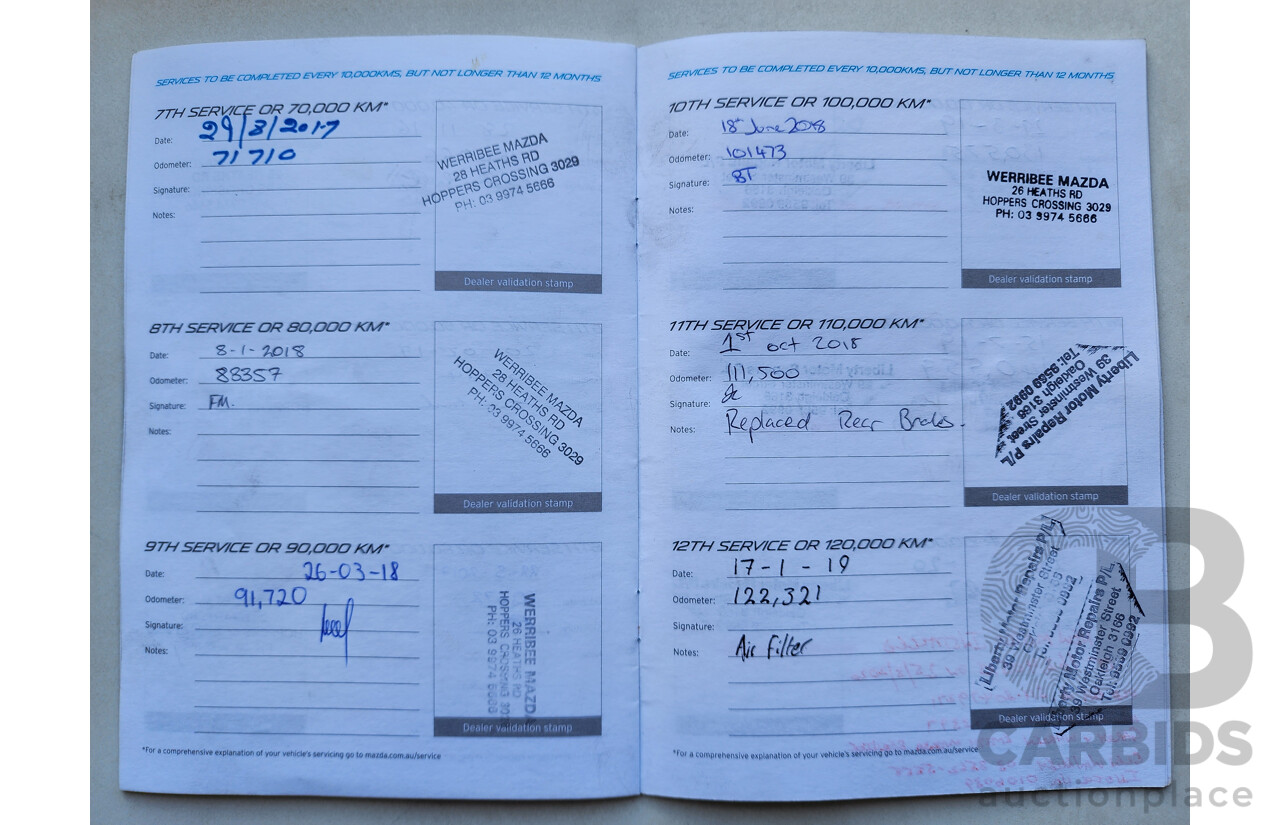 SERVICES TO BE COMPLETED EVERY 10,000KMS, BUT NOT LONGER THAN 12 MONTHS
7TH SERVICE OR 70,000 KM*
Date: 29/8/2017
Odometer: 71710
Signature:
Notes:
WERRIBEE MAZDA
28 HEATHS RD
HOPPERS CROSSING 3029
PH: 03 9974 5666
Dealer validation stamp
8TH SERVICE OR 80,000 KM*
Date: 8-1-2018
Odometer: 83357
Signature: FM.
Notes:
WERRIBEE MAZDA
28 HEATHS RD
HOPPERS CROSSING 3029
PH: 03 9974 5666
Dealer validation stamp
9TH SERVICE OR 90,000 KM*
Date: 26-03-18
Odometer: 91,720
Signature:
Notes:
WERRIBEE MAZDA
26 HEATHS RD
HOPPERS CROSSING 3029
PH: 03 9974 5666
Dealer validation stamp
*For a comprehensive explanation of your vehicle's servicing go to mazda.com.au/service
SERVICES TO BE COMPLETED EVERY 10,000KMS, BUT NOT LONGER THAN 12 MONTHS
10TH SERVICE OR 100,000 KM*
Date: 18th June 2018
Odometer: 101473
Signature: BT
Notes:
WERRIBEE MAZDA
26 HEATHS RD
HOPPERS CROSSING 3029
PH: 03 9974 5666
Dealer validation stamp
11TH SERVICE OR 110,000 KM*
Date: 1st oct 2018
Odometer: 111,500
Signature:
Notes: Replaced Rear Brakes.
Liberty Motor Repairs P/L
39 Westminster Street
Oakleigh 3166
Tel: 9569 0992
Dealer validation stamp
12TH SERVICE OR 120,000 KM*
Date: 17-1-19
Odometer: 122,321
Signature:
Notes: Air filter
Liberty Motor Repairs P/L
39 Westminster Street
Liberty Motor Repairs P/L
39 Westminster Street
Oakleigh 3166
Tel: 9569 0992
Dealer validation stamp
*For a comprehensive explanation of your vehicle's servicing go to mazda.com.au/service
CARBIDS
auctionplace